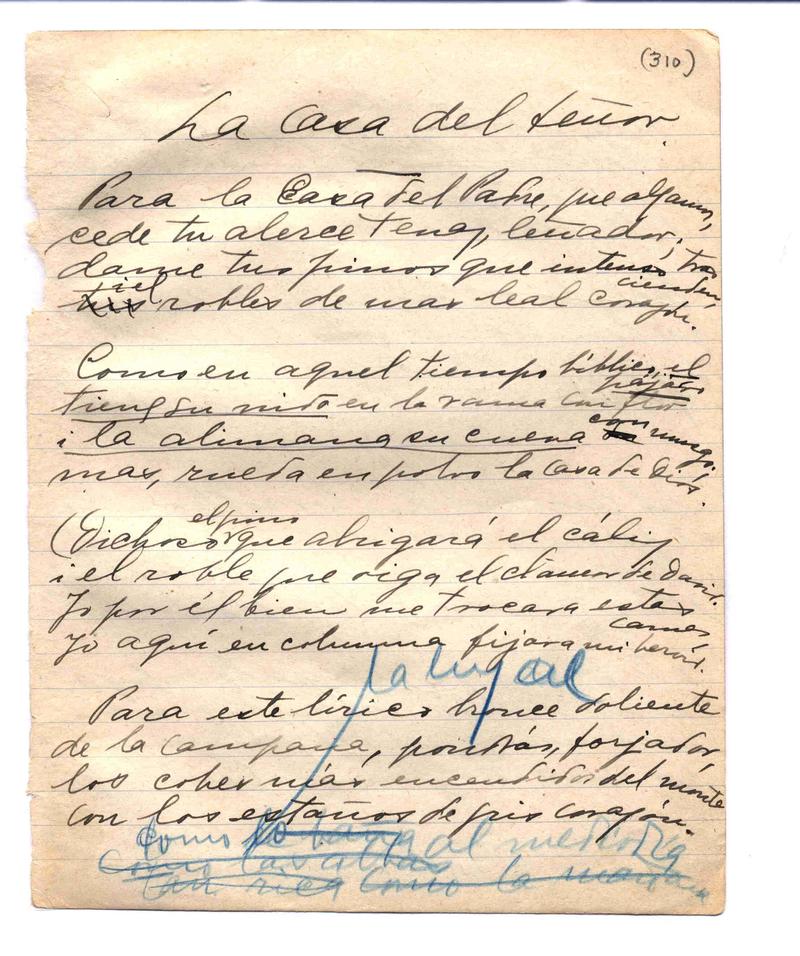 (310)
La Casa del Señor.
Para la Casa del Padre, que alzamos,
cede tu alerce tenaz, leñador;
dame tus pinos que intenso trascienden,
i el robles de mas leal corazón.
Como en aquel tiempo bíblico, el pájaro
tiene su nido en la rama con flor
i la alimana su cueva con musgo;
mas, rueda en polvo la Casa de Dios.
(Dichoso el pino que abrigará el cáliz
i el roble que oiga el clamor de David.
Yo por él bien me trocara estas carnes
Yo aquí en columna fijara mi
la luz al
Para este lírico bronce doliente
de la campana, pondrás, forjador,
los cobres más encendidos del monte
con los estaños de gris corazón.
Como al mediodía
como la mañana